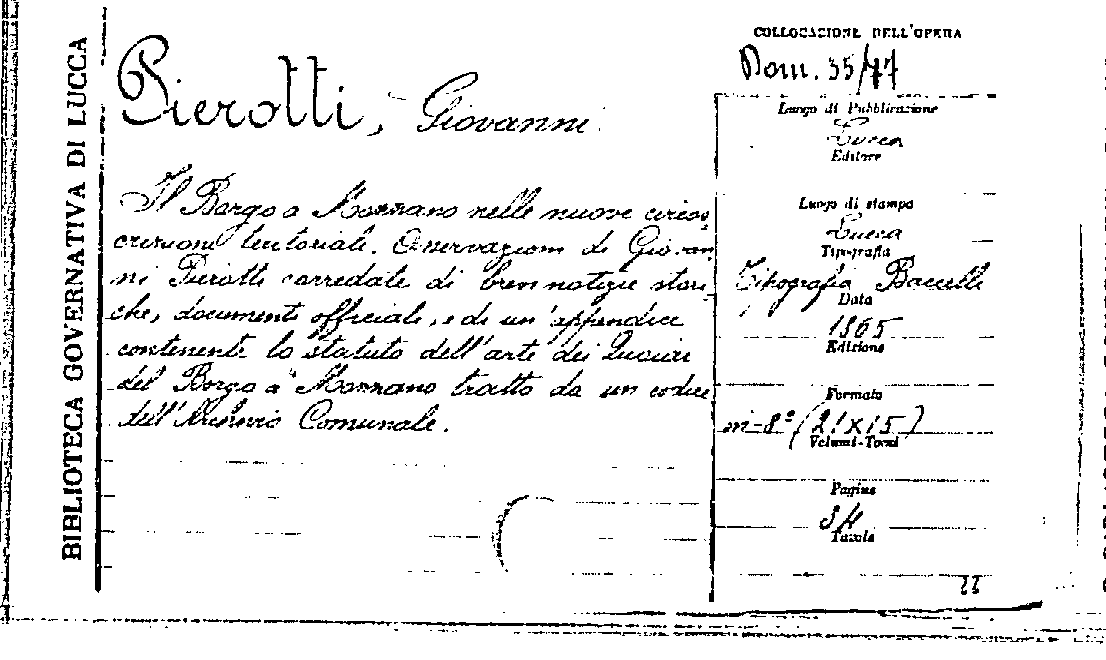 BIBLIOTECA GOVERNATIVA DI LUCCA
Pierotti, Giovanni
Il Borgo a Mozzano nelle nuove circos
crizioni territoriale. Osservazioni di Giovan
ni Pierotti corredate di brevi notizie stori
che, documenti officiali, e di un'appendice
contenente lo statuto dell'arte dei
del Borgo a Mozzano tratto da un codice
dell'Archivio Comunale.
COLLOCAZIONE DELL'OPERA
Dom. 35/77
Luogo di Pubblicazione
Lucca
Editore
Luogo di stampa
Lucca
Tipografia
Tipografia Baccelli
Data
1865
Edizione
Formato
in-8° (21x15)
Volumi-Tomi
Pagine
Tavole
22